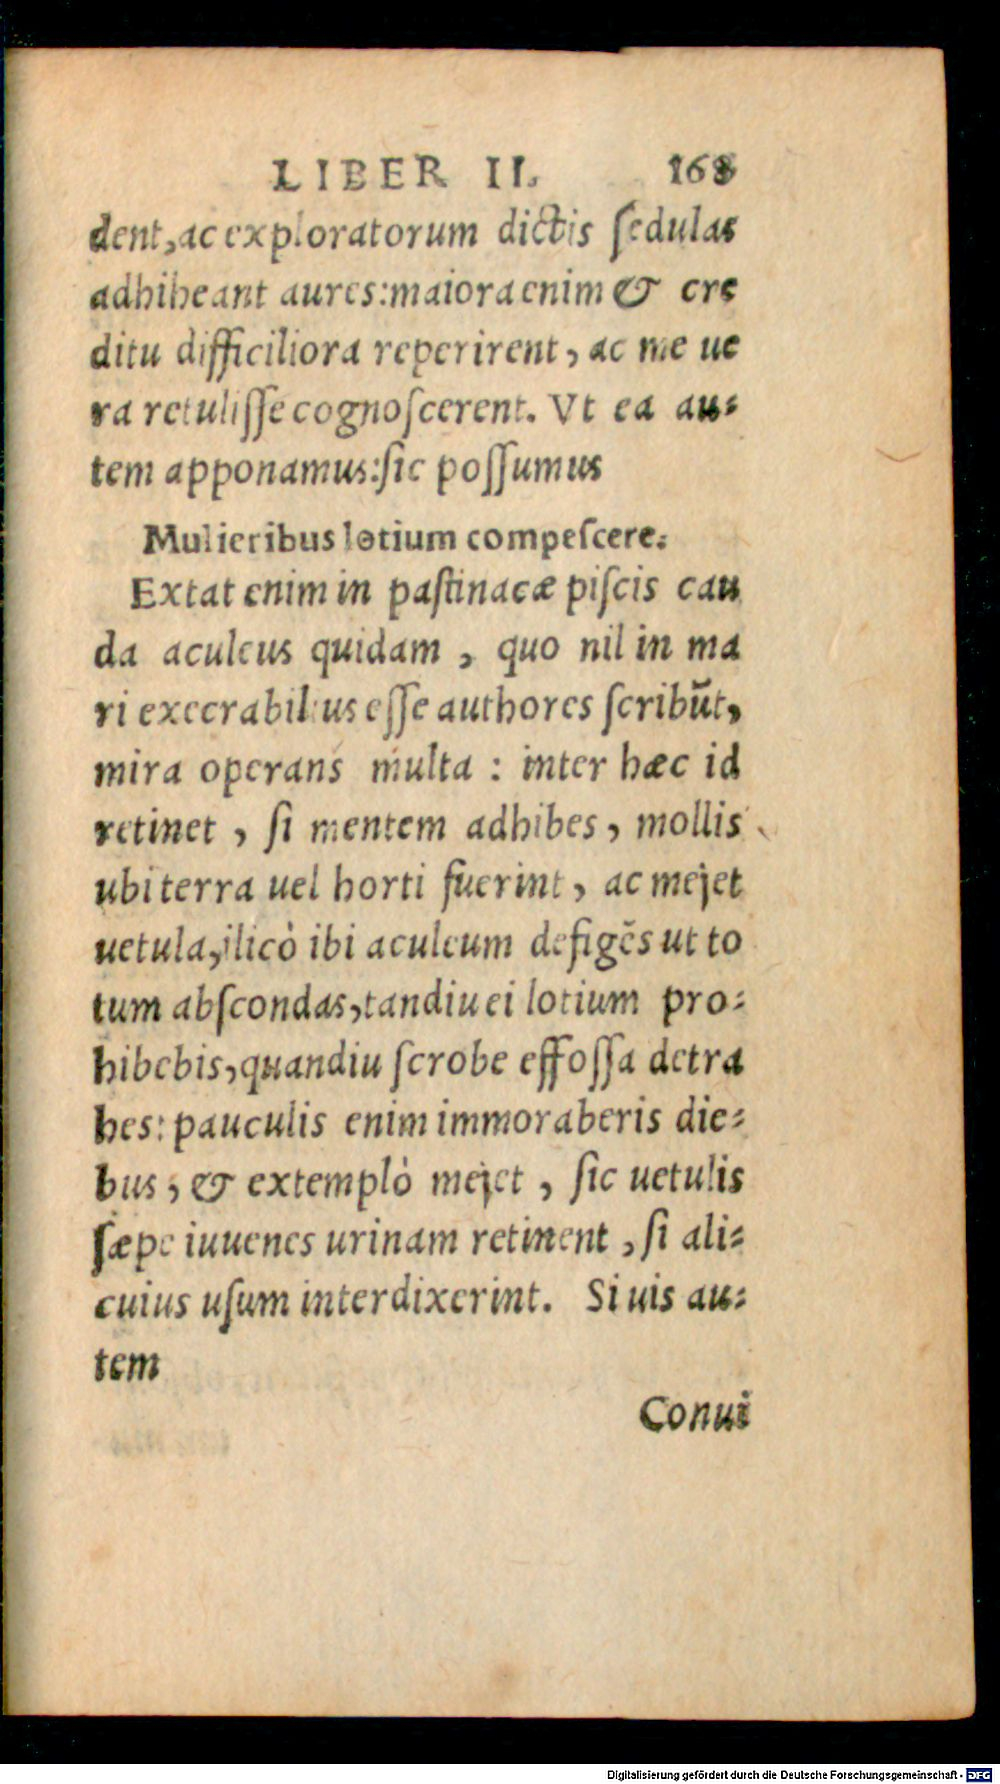 LIBER II. 168
dent, ac exploratorum dictis ſedulas
adhibeant aures: maiora enim & cre
ditu difficiliora reperirent, ac me ue
ra retuliſſe cognoſcerent. Vt ea au⸗
tem apponamus: ſic poſſumus
Mulieribus lotium compeſcere.
Extat enim in paſtinacæ piſcis cau
da aculeus quidam, quo nil in ma
ri execrabilius eſſe authores ſcribūt,
mira operans multa: inter hæc id
retinet, ſi mentem adhibes, mollis
ubi terra uel horti fuerint, ac mejet
uetula, ilicò ibi aculeum defigēs ut to
tum abſcondas, tandiu ei lotium pro⸗
hibebis, quandiu ſcrobe effoſſa detra
hes: pauculis enim immoraberis die⸗
bus, & extemplò mejet, ſic uetulis
ſæpe iuuenes urinam retinent, ſi ali⸗
cuius uſum interdixerint. Si uis au⸗
tem
Conui
Digitalisierung gefördert durch die Deutsche Forschungsgemeinschaft - DFG